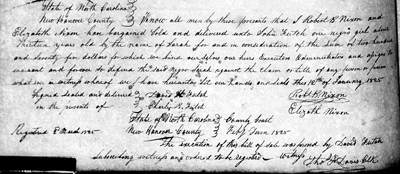 State of North Carolina }
New Hanover County } Know all men by these presents that I Robert B. Nixon and
Elizabeth Nixon have bargained Sold and delivered unto John Hatch one negro girl about
Thirteen years old by the name of Sarah for and in consideration of the Sum of two hundred
and Seventy five dollars for which we bind our selves our heirs Executors Administrators and assigns to
warrant and forever to defend the said Negro Sarah against the claim or title of any person or person
what ever in witness whereof we have hereunto Set our hands and Seals this 16th of January 1825
Signed Sealed and delivered } David Hatch Robt B. Nixon
in the presents of } Charles R. Hatch Elizabeth Nixon
State of North Carolina } County Court
Registered 8 March 1825 New Hanover County } Feby Term 1825
The execution of this bill of sale was proved by David Hatch
subscribing witness and ordered to be registered Witness
Thos. F. Davis Clk